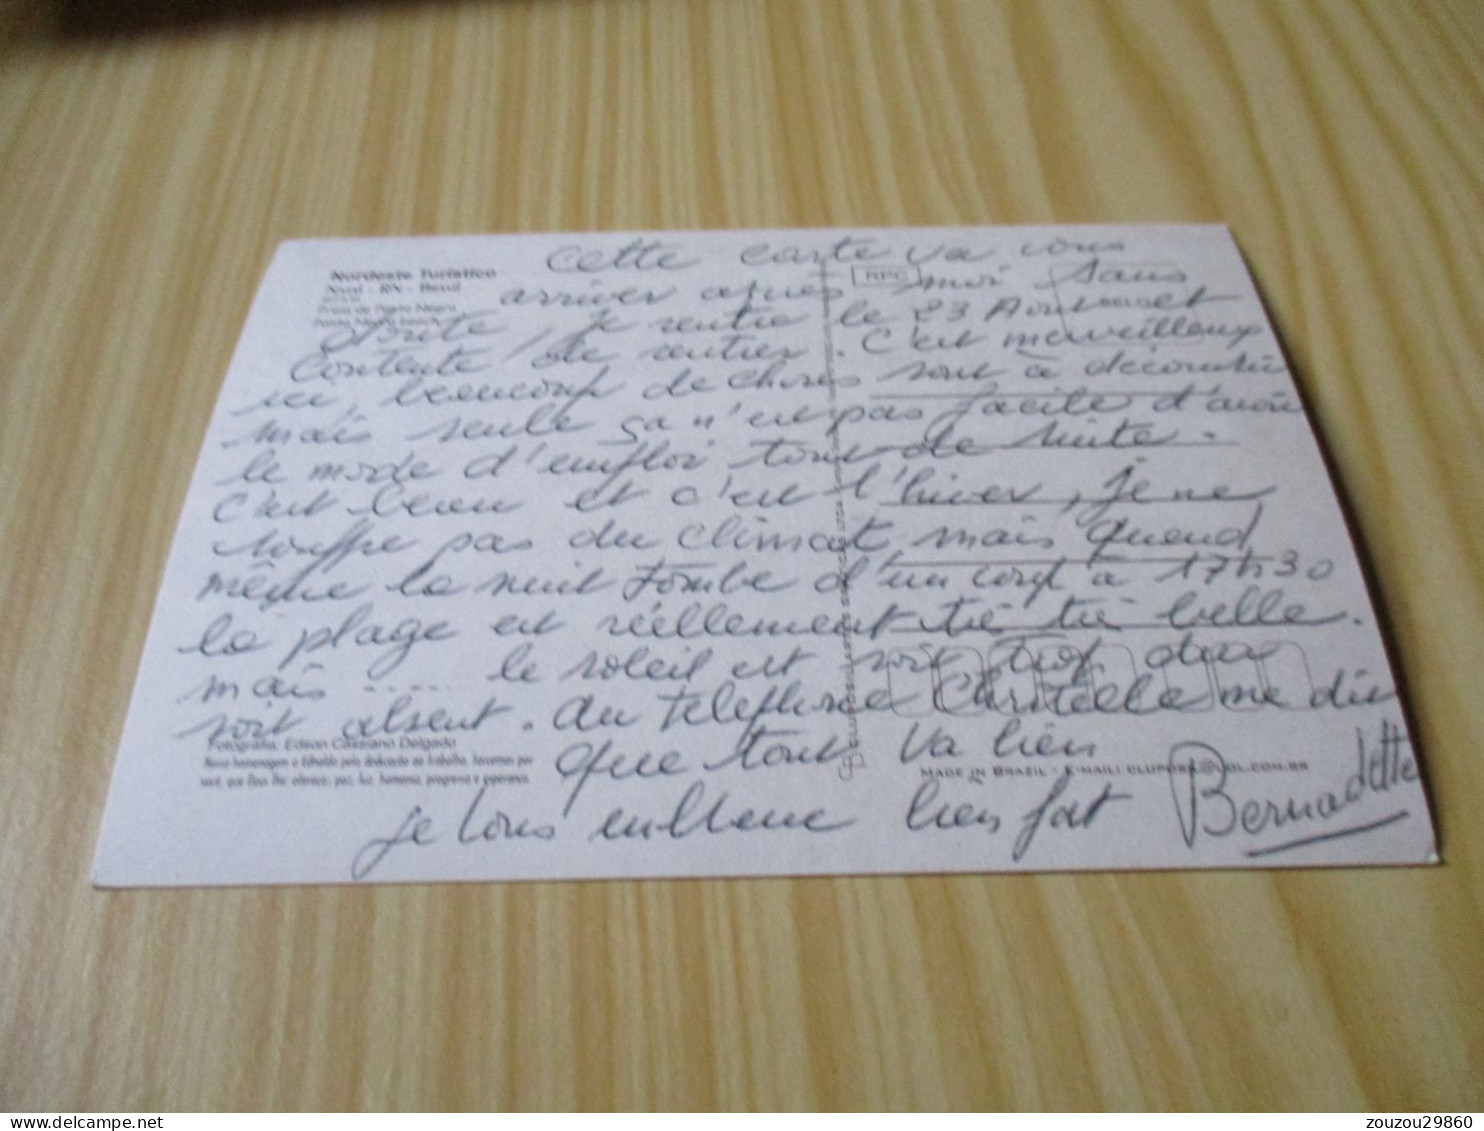 Cette carte va vous
arriver après moi sans
doute, je rentre le 23 Aout et
Contente de rentrer. C'est merveilleux
ici, beaucoup de choses sont à découvrir
mais seule ça n'est pas facile d'avoir
le mode d'emploi tout de suite.
C'est beau et c'est l'hiver, je ne
souffre pas du climat mais quand
même la nuit tombe d'un coup à 17h30
la plage est réellement très très belle.
mais ..... le soleil est soit trop dur
soit absent. Au téléphone Christelle me dit
que tout va bien
je vous embrasse bien fort Bernadette
Nordeste Turístico
Natal - RN - Brasil
Praia de Ponta Negra
Ponta Negra beach
RPC
Fotografia: Edson Cassiano Delgado
Nossa homenagem a Edvaldo pela dedicação ao trabalho, fazemos por
você, que Deus lhe oferece: paz, luz, harmonia, progresso e esperança.
MADE IN BRAZIL - E-MAIL: CLUPOSA@UOL.COM.BR
zouzou29860
www.delcampe.net